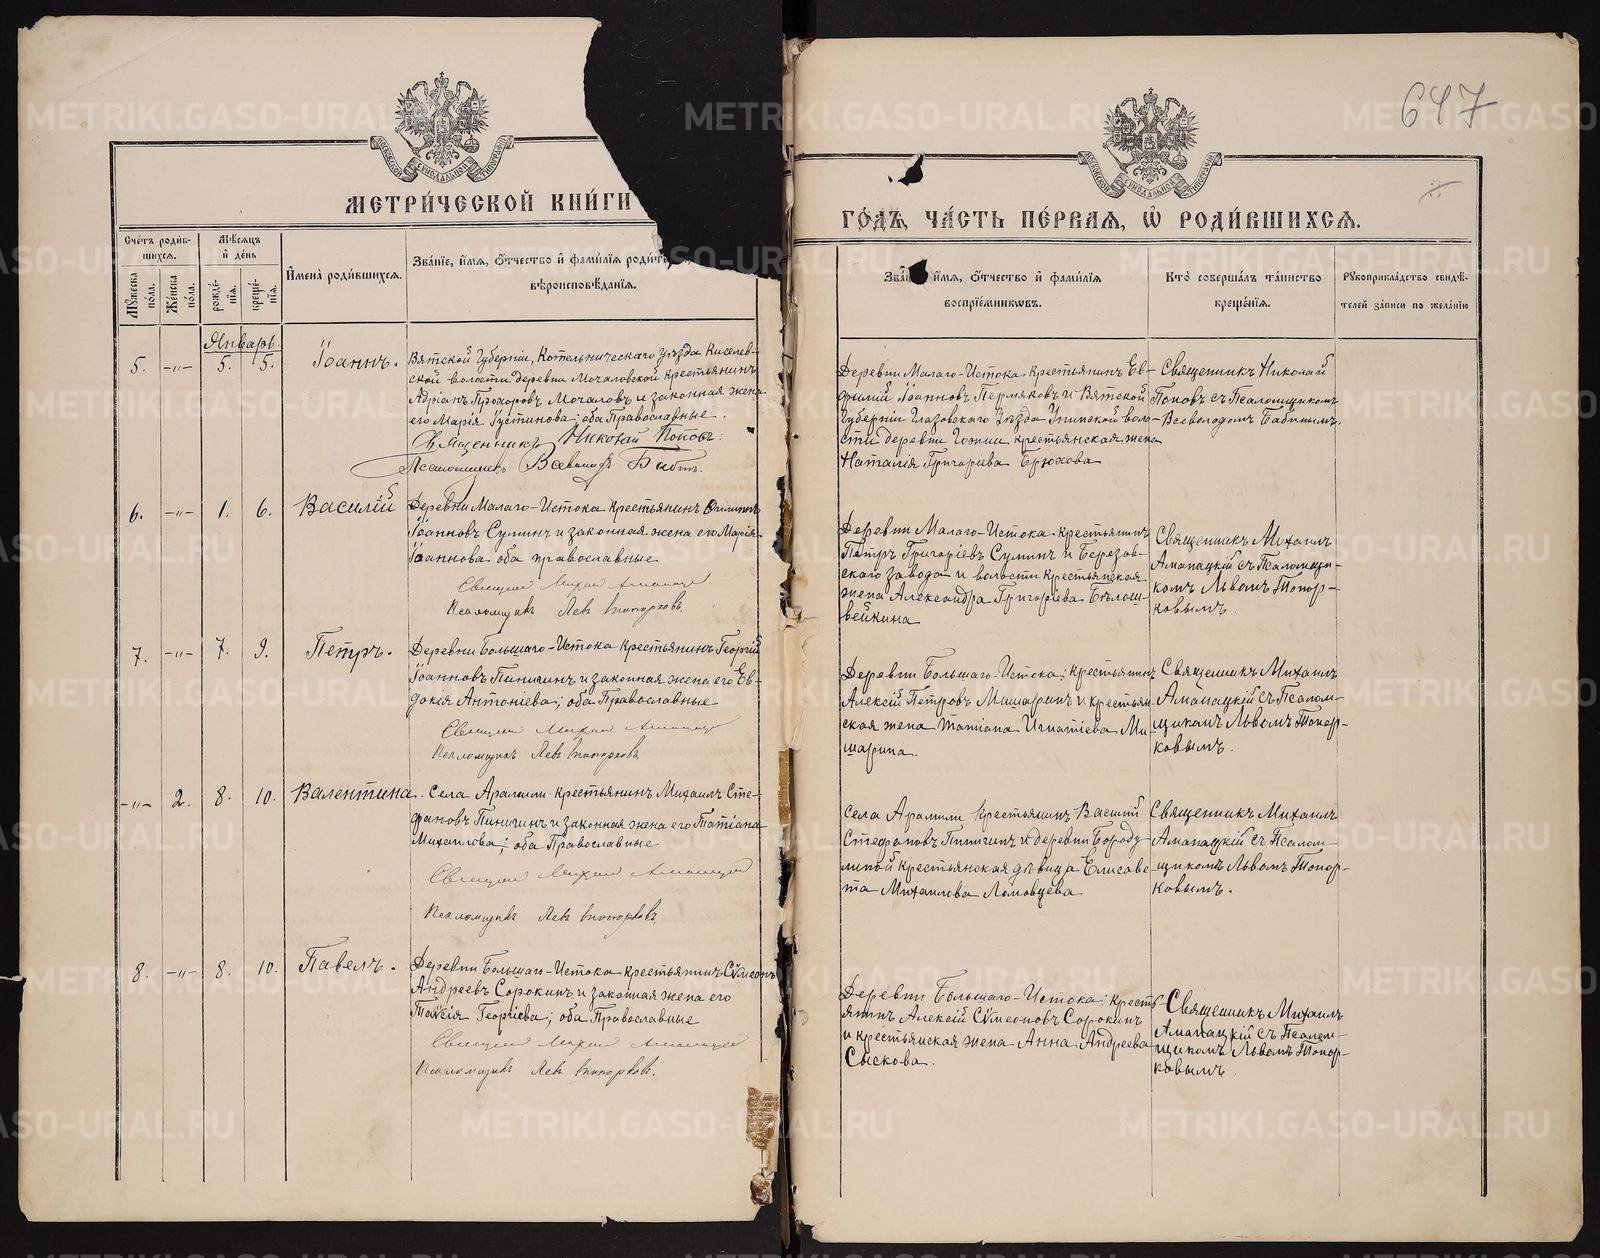 647
МЕТРИ́ЧЕСКОЙ КНИ́ГИ
ГО́ДЪ, ЧА́СТЬ ПЕ́РВАЯ, Ѡ҆ РОДИ́ВШИХСЯ.
МОСКОВСКОЙ СѴНОДАЛЬНОЙ ТИПОГРАФІИ
МОСКОВСКОЙ СѴНОДАЛЬНОЙ ТИПОГРАФІИ
Сче́тъ роди́в-
шихся.
Мѣ́сяцъ
и҆ де́нь
Му́жеска
по́ла.
Же́нска
по́ла.
рожде́-
нїя.
креще́-
нїя.
И҆мена̀ роди́вшихся.
Зва́нїе, и҆́мя, ѻ҆́тчество и҆ фами́лїя роди́т
вѣроисповѣ́данїя.
и҆́мя, ѻ҆́тчество и҆ фами́лїя
воспрїе́мниковъ.
Кто̀ соверша́лъ та́инство
креще́нїя.
Рукоприкла́дство свидѣ́-
телей за́писи по жела́нїю
Январь
5. -"- 5. 5. Іоаннъ.
Вятской Губерніи, Котельническаго уѣзда Киселев-
ской волости деревни Мочаловской крестьянинъ
Адріанъ Прохоровъ Мочаловъ и законная жена
его Марія Густинова; оба Православные.
Священникъ Николай Поповъ.
Псаломщикъ Всеволодъ Бабинъ.
Деревни Малаго-Истока крестьянинъ Ев-
фимій Іоанновъ Пермяковъ и Вятской
Губерніи Глазовскаго уѣзда Унинской воло-
сти деревни крестьянская жена
Наталія Григоріева Брюхова
Священникъ Николай
Поповъ съ Псаломщикомъ
Всеволодомъ Бабинымъ.
6. -"- 1. 6. Василій
Деревни Малаго-Истока крестьянинъ Филиппъ
Іоанновъ Сулинъ и законная жена его Марія
Іоаннова оба православные
Священникъ Михаилъ Аманацкій
Псаломщикъ Левъ Топорковъ.
Деревни Малаго-Истока крестьянинъ
Петръ Григоріевъ Сулинъ и Березов-
скаго завода и волости крестьянская
жена Александра Григоріева Бѣлош-
вейкина
Священникъ Михаилъ
Аманацкій съ Псаломщи-
комъ Львомъ Топор-
ковымъ.
7. -"- 7. 9. Петръ.
Деревни Большаго-Истока крестьянинъ Георгій
Іоанновъ Пинигинъ и законная жена его Ев-
докія Антоніева; оба Православные
Священникъ Михаилъ Аманацкій
Псаломщикъ Левъ Топорковъ.
Деревни Большаго-Истока; крестьянинъ
Алексій Петровъ Мишаринъ и крестьян
ская жена Татіана Игнатіева Ми-
шарина.
Священникъ Михаилъ
Аманацкій съ Псалом-
щикомъ Львомъ Топор-
ковымъ.
-"- 2. 8. 10. Валентина.
Села Арамили крестьянинъ Михаилъ Сте-
фановъ Пинигинъ и законная жена его Татіана
Михаилова; оба Православные
Священникъ Михаилъ Аманацкій
Псаломщикъ Левъ Топорковъ.
Села Арамили крестьянинъ Василій
Стефановъ Пинигинъ и деревни Бороду-
линой крестьянская дѣвица Елисаве-
та Михаилова Ломовцева
Священникъ Михаилъ
Аманацкій съ Псалом-
щикомъ Львомъ Топор-
ковымъ.
8. -"- 8. 10. Павелъ.
Деревни Большаго-Истока крестьянинъ Сѵмеонъ
Андреевъ Сорокинъ и законная жена его
Таисія Георгіева; оба Православные
Священникъ Михаилъ Аманацкій
Псаломщикъ Левъ Топорковъ.
Деревни Большаго-Истока; кресть-
янинъ Алексій Сѵмеоновъ Сорокинъ
и крестьянская жена Анна Андреева
Сыскова.
Священникъ Михаилъ
Аманацкій съ Псалом-
щикомъ Львомъ Топор-
ковымъ.
METRIKI.GASO-URAL.RU